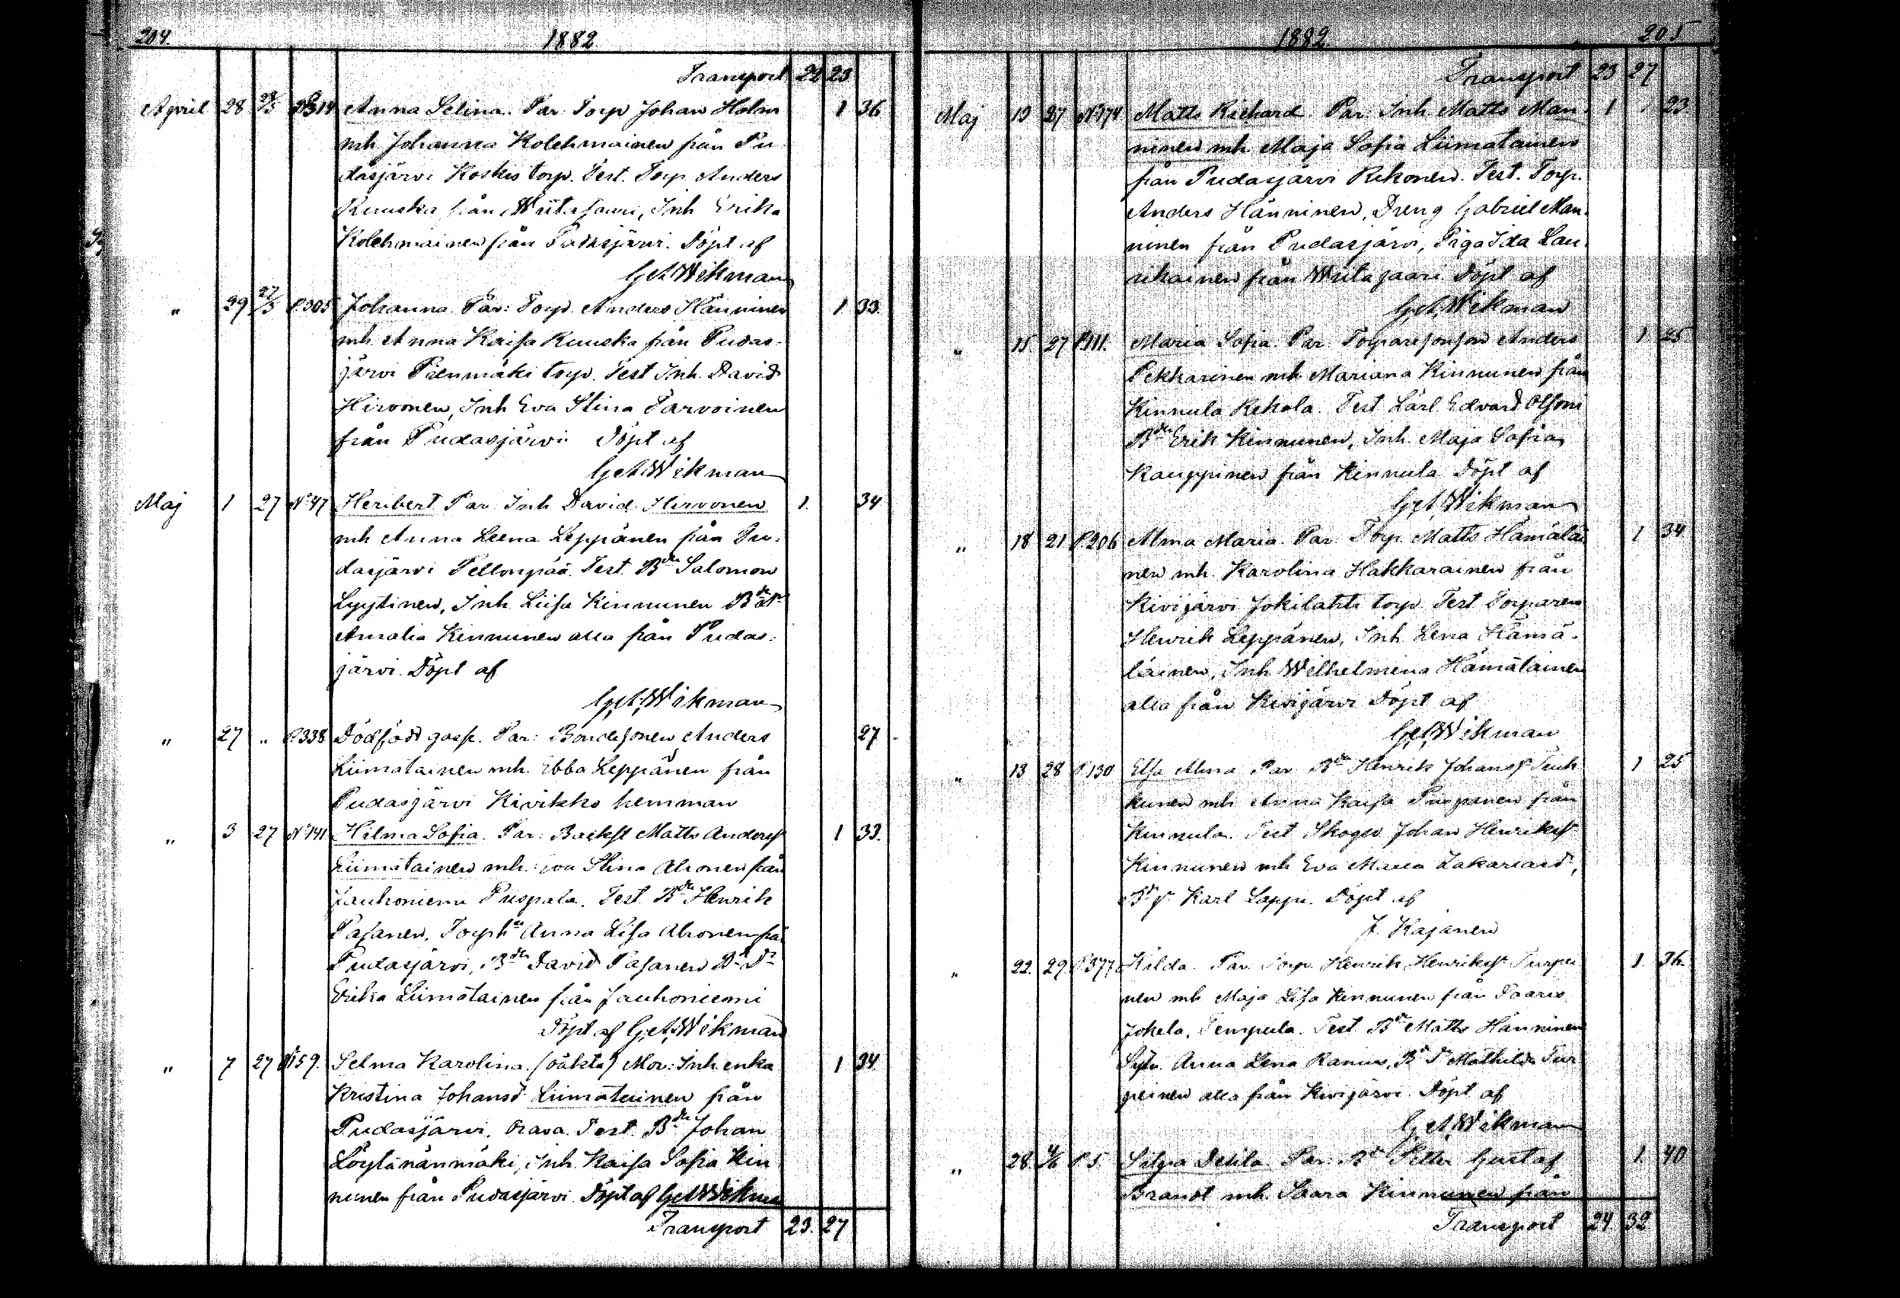 204. 1882
Transport 22 23
April 28 28/5 P.314 Anna Selina. Par: Torp Johan Holm 1 36
mh. Johanna Kolehmainen från Pu-
dasjärvi Koskis torp. Test. Torp Anders
Ruuska från Wiitasaari, Inh Erika
Kolehmainen från Pudasjärvi. Döpt af
G.A.Wikman
" 29 27/5 P.305 Johanna. Par: Torp. Anders Hänninen 1 33
mh. Anna Kaisa Ruuska från Pudas-
järvi Pienmäki torp. Test Inh. David
Hirvonen, Inh Eva Stina Parvoinen
från Pudasjärvi Döpt af
G.A.Wikman
Maj 1 27 No 47 Heribert. Par. Inh David Hirvonen 1. 34
mh Anna Leena Leppänen från Pu-
dasjärvi Pellonpää. Test. Bdn Salomon
Lyytinen, Inh. Liisa Kinnunen Bdr
Amalia Kinnunen alla från Pudas-
järvi. Döpt af
G.A.Wikman
" 27 " P.338 Dödfödd gosse. Par: Bondesonen Anders 27
Liimatainen mh. Ebba Leppänen från
Pudasjärvi Kivikko hemman
" 3 27 No 141 Hilma Sofia. Par: Backst Matts Anderss 1 33.
Liimatainen mh. Eva Stina Ahonen från
Jauhoniemi Puspala. Test. Bdn Henrik
Pasanen, Torph Anna Lisa Ahonen från
Pudasjärvi, Bdn David Pasanen Bd Dr
Erika Liimatainen från Jauhoniemi
Döpt af G.A.Wikman
" 7 27 No 159. Selma Karolina. (oäkta) Mor: Inh. enka 1 34
Kristina Johansd. Liimatainen från
Pudasjärvi, Test. Bdn Johan
Löytänänmäki, Inh. Kaisa Sofia Kin
nunen från Pudasjärvi. Döpt af G.A.Wikman
Transport 23. 27
1882. 205
Transport 23 27
Maj 19 27 No 174 Matts Richard. Par: Inh. Matts Man- 1 23.
ninen mh. Maja Sofia Liimatainen
från Pudasjärvi Rekonen. Test. Torp.
Anders Hänninen, Dreng Gabriel Man-
ninen från Pudasjärvi, Piga Ida Lau-
rikainen från Wiitasaari Döpt af
G.A.Wikman
" 15 27 P.111. Maria Sofia. Par. Torparesonson Anders 1 25
Pekkarinen mh. Mariana Kinnunen från
Kinnula Kekola. Test. Lärl. Edvard Olsoni
Bdn Erik Kinnunen, Inh. Maja Sofia
Kauppinen från Kinnula Döpt af
G.A.Wikman
" 18 21 P.206 Alma Maria. Par. Torp. Matts Hämäläi 1 34
nen mh. Karolina Hakkarainen från
Kivijärvi Jokilahti torp. Test Torparen
Henrik Leppänen, Inh. Lena Hämä-
läinen, Inh Wilhelmina Hämäläinen
alla från Kivijärvi Döpt af
G.A.Wikman
" 13 28 P.130 Elsa Alma Par. Bdn Henrik Johanss Tuik- 1 25
kunen mh Anna Kaisa Piispanen från
Kinnula. Test Skogsv Johan Henrikss
Kinnunen mh Eva Maria Zakariasd,
Karl Lappi. Döpt af
J. Kajanen
" 22. 29 P.377 Hilda. Par. Torp. Henrik Henrikss Turpei 1. 36.
nen mh Maja Lisa Kinnunen från
Jokela, Tempula. Test. Bdn Matts Hänninen
Anna Lena Ranius, Bd Dr Mathilda Tur
peinen alla från Kivijärvi. Döpt af
G.A.Wikman
" 28. 4/6 P.5. Silpa Delila. Par: Bd Petter Gustaf 1. 40
Brandt mh. Saara Kinnunen från
Transport 24. 32